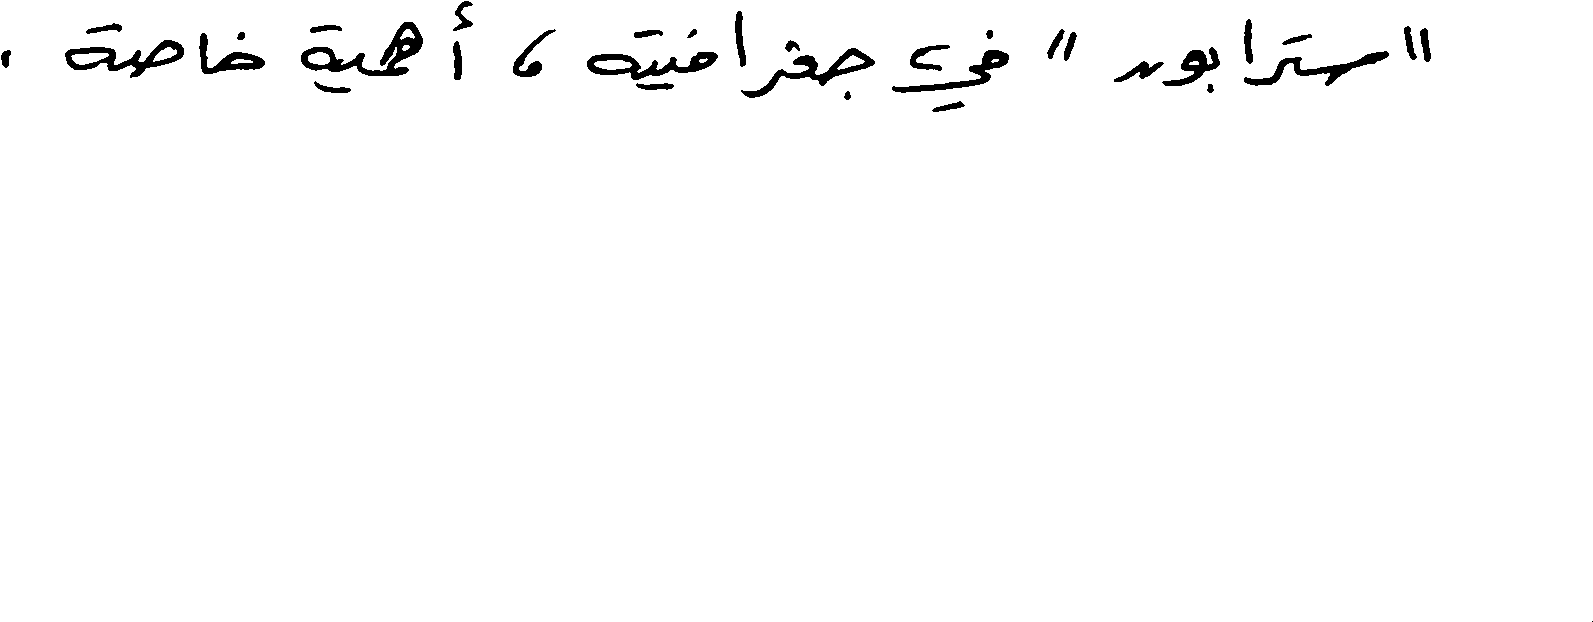 "سترابون" في جغرافيته ، أهمية خاصة .